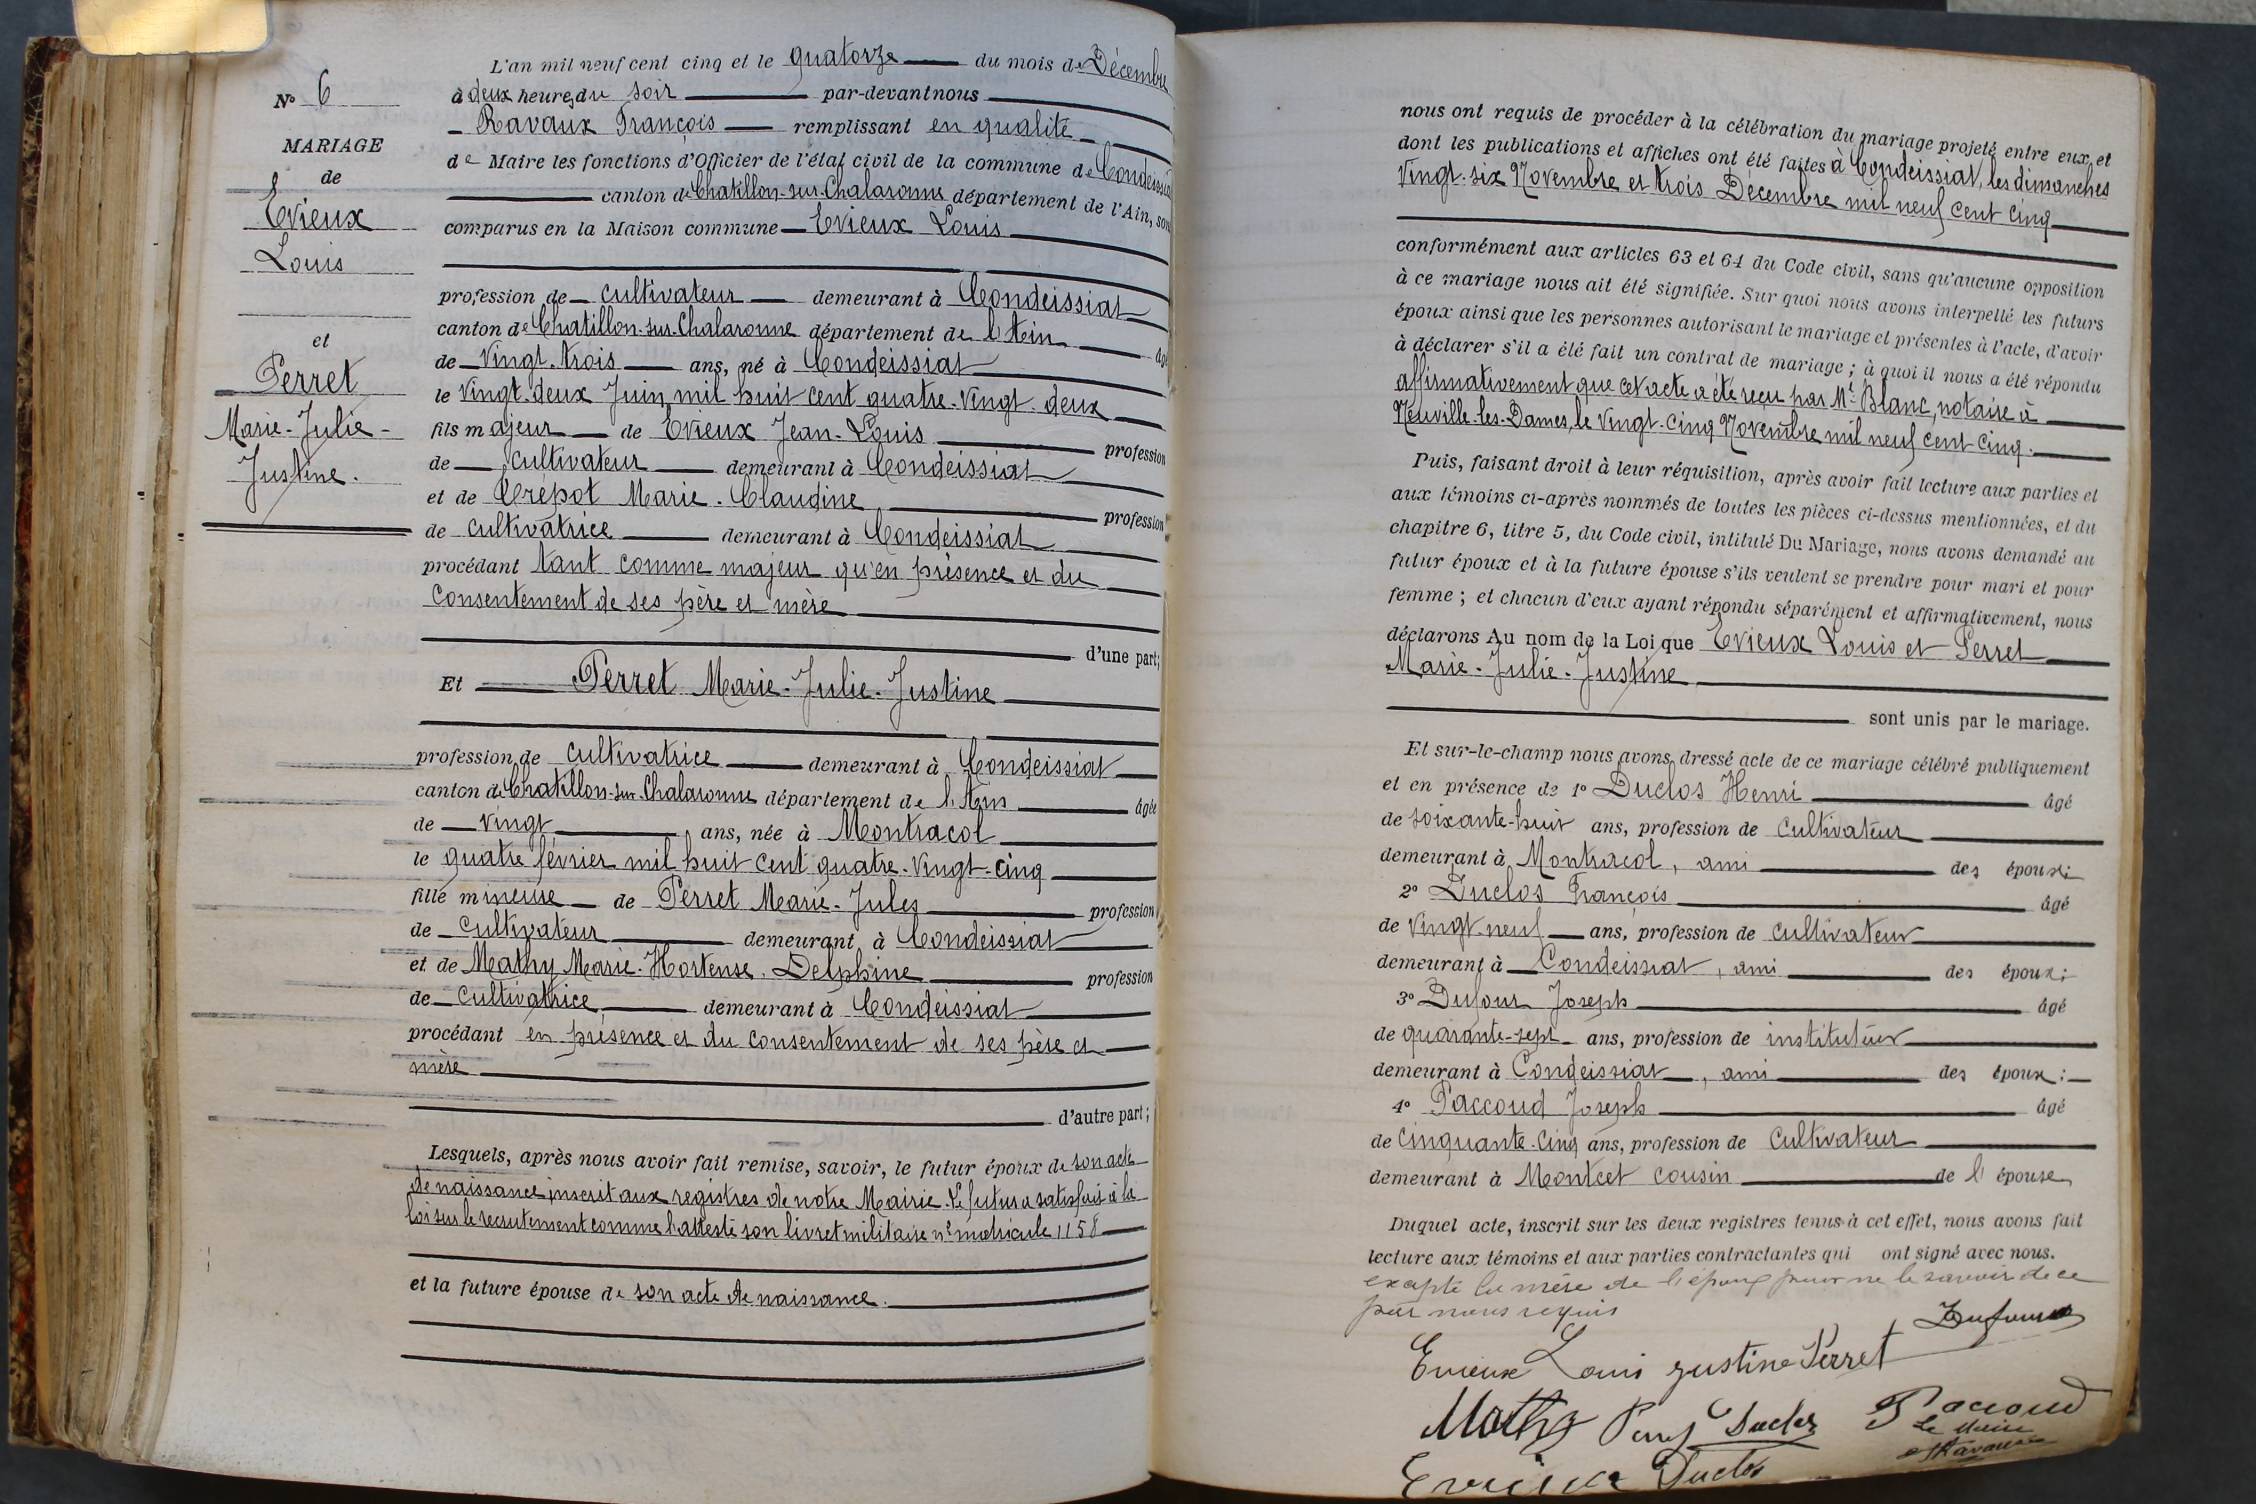 N° 6
MARIAGE
de
Evieux
Louis
et
Perret
Marie-Julie-
Justine.
L'an mil neuf cent cinq et le quatorze du mois de Décembre
à deux heures du soir par-devant nous
Ravaux François remplissant en qualité
de Maire les fonctions d'Officier de l'état civil de la commune de Condeissiat
canton de Chatillon-sur-Chalaronne département de l'Ain, sont
comparus en la Maison commune Evieux Louis
profession de cultivateur demeurant à Condeissiat
canton de Chatillon-sur-Chalaronne département de l'Ain âgé
de vingt-trois ans, né à Condeissiat
le vingt-deux Juin mil huit cent quatre-vingt-deux
fils majeur de Evieux Jean-Louis profession
de cultivateur demeurant à Condeissiat
et de Crépot Marie-Claudine profession
de cultivatrice demeurant à Condeissiat
procédant tant comme majeur qu'en présence et du
consentement de ses père et mère
d'une part;
Et Perret Marie-Julie-Justine
profession de cultivatrice demeurant à Condeissiat
canton de Chatillon-sur-Chalaronne département de l'Ain âgée
de vingt ans, née à Montracol
le quatre février mil huit cent quatre-vingt-cinq
fille mineure de Perret Marie-Jules profession
de cultivateur demeurant à Condeissiat
et de Mathy Marie-Hortense-Delphine profession
de cultivatrice demeurant à Condeissiat
procédant en présence et du consentement de ses père et
mère
d'autre part;
Lesquels, après nous avoir fait remise, savoir, le futur époux de son acte
de naissance inscrit aux registres de notre Mairie. Le futur a satisfait à la
loi sur le recrutement comme l'atteste son livret militaire n° matricule 1158
et la future épouse de son acte de naissance.
nous ont requis de procéder à la célébration du mariage projeté entre eux, et
dont les publications et affiches ont été faites à Condeissiat, les dimanches
vingt-six Novembre et trois Décembre mil neuf cent cinq
conformément aux articles 63 et 64 du Code civil, sans qu'aucune opposition
à ce mariage nous ait été signifiée. Sur quoi nous avons interpellé les futurs
époux ainsi que les personnes autorisant le mariage et présentes à l'acte, d'avoir
à déclarer s'il a été fait un contrat de mariage; à quoi il nous a été répondu
affirmativement que cet acte a été reçu par Me Blanc, notaire à
Neuville-les-Dames, le vingt-cinq Novembre mil neuf cent cinq.
Puis, faisant droit à leur réquisition, après avoir fait lecture aux parties et
aux témoins ci-après nommés de toutes les pièces ci-dessus mentionnées, et du
chapitre 6, titre 5, du Code civil, intitulé Du Mariage, nous avons demandé au
futur époux et à la future épouse s'ils veulent se prendre pour mari et pour
femme; et chacun d'eux ayant répondu séparément et affirmativement, nous
déclarons Au nom de la Loi que Evieux Louis et Perret
Marie-Julie-Justine
sont unis par le mariage.
Et sur-le-champ nous avons dressé acte de ce mariage célébré publiquement
et en présence de 1° Duclos Henri âgé
de soixante-huit ans, profession de cultivateur
demeurant à Montracol, ami des époux;
2° Duclos François âgé
de vingt-neuf ans, profession de cultivateur
demeurant à Condeissiat, ami des époux;
3° Dufour Joseph âgé
de quarante-sept ans, profession de instituteur
demeurant à Condeissiat, ami des époux;
4° Paccoud Joseph âgé
de cinquante-cinq ans, profession de cultivateur
demeurant à Montcet cousin de l'épouse
Duquel acte, inscrit sur les deux registres tenus à cet effet, nous avons fait
lecture aux témoins et aux parties contractantes qui ont signé avec nous.
excepté la mère de l'époux pour ne le savoir de ce
par nous requis
Dufour
Evieux Louis Justine Perret
Mathy Perret Duclos Paccoud
Le Maire
Ravaux
Evieux Duclos